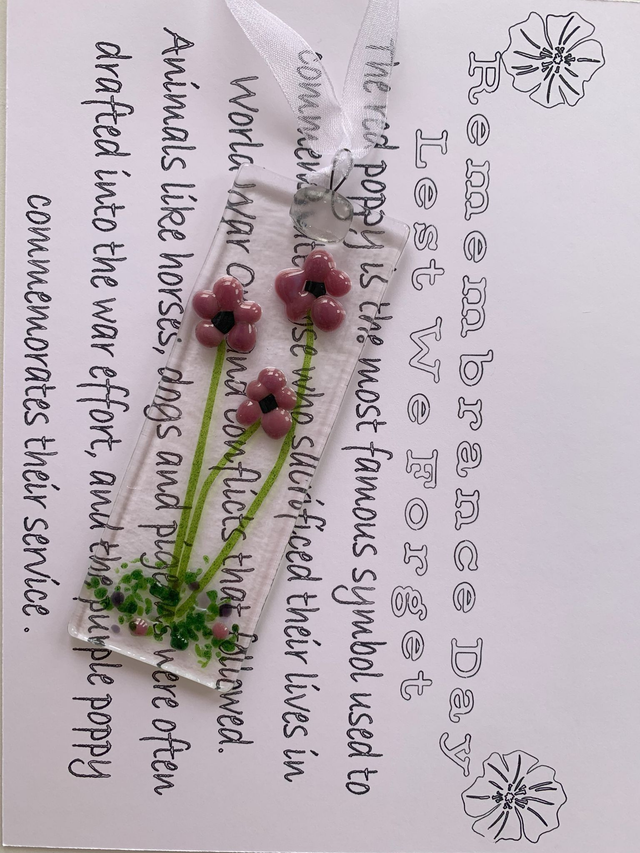 Remembrance Day
Lest We Forget
The red poppy is the most famous symbol used to
commemorate those who sacrificed their lives in
World War One and conflicts that followed.
Animals like horses, dogs and pigeons were often
drafted into the war effort, and the purple poppy
commemorates their service.